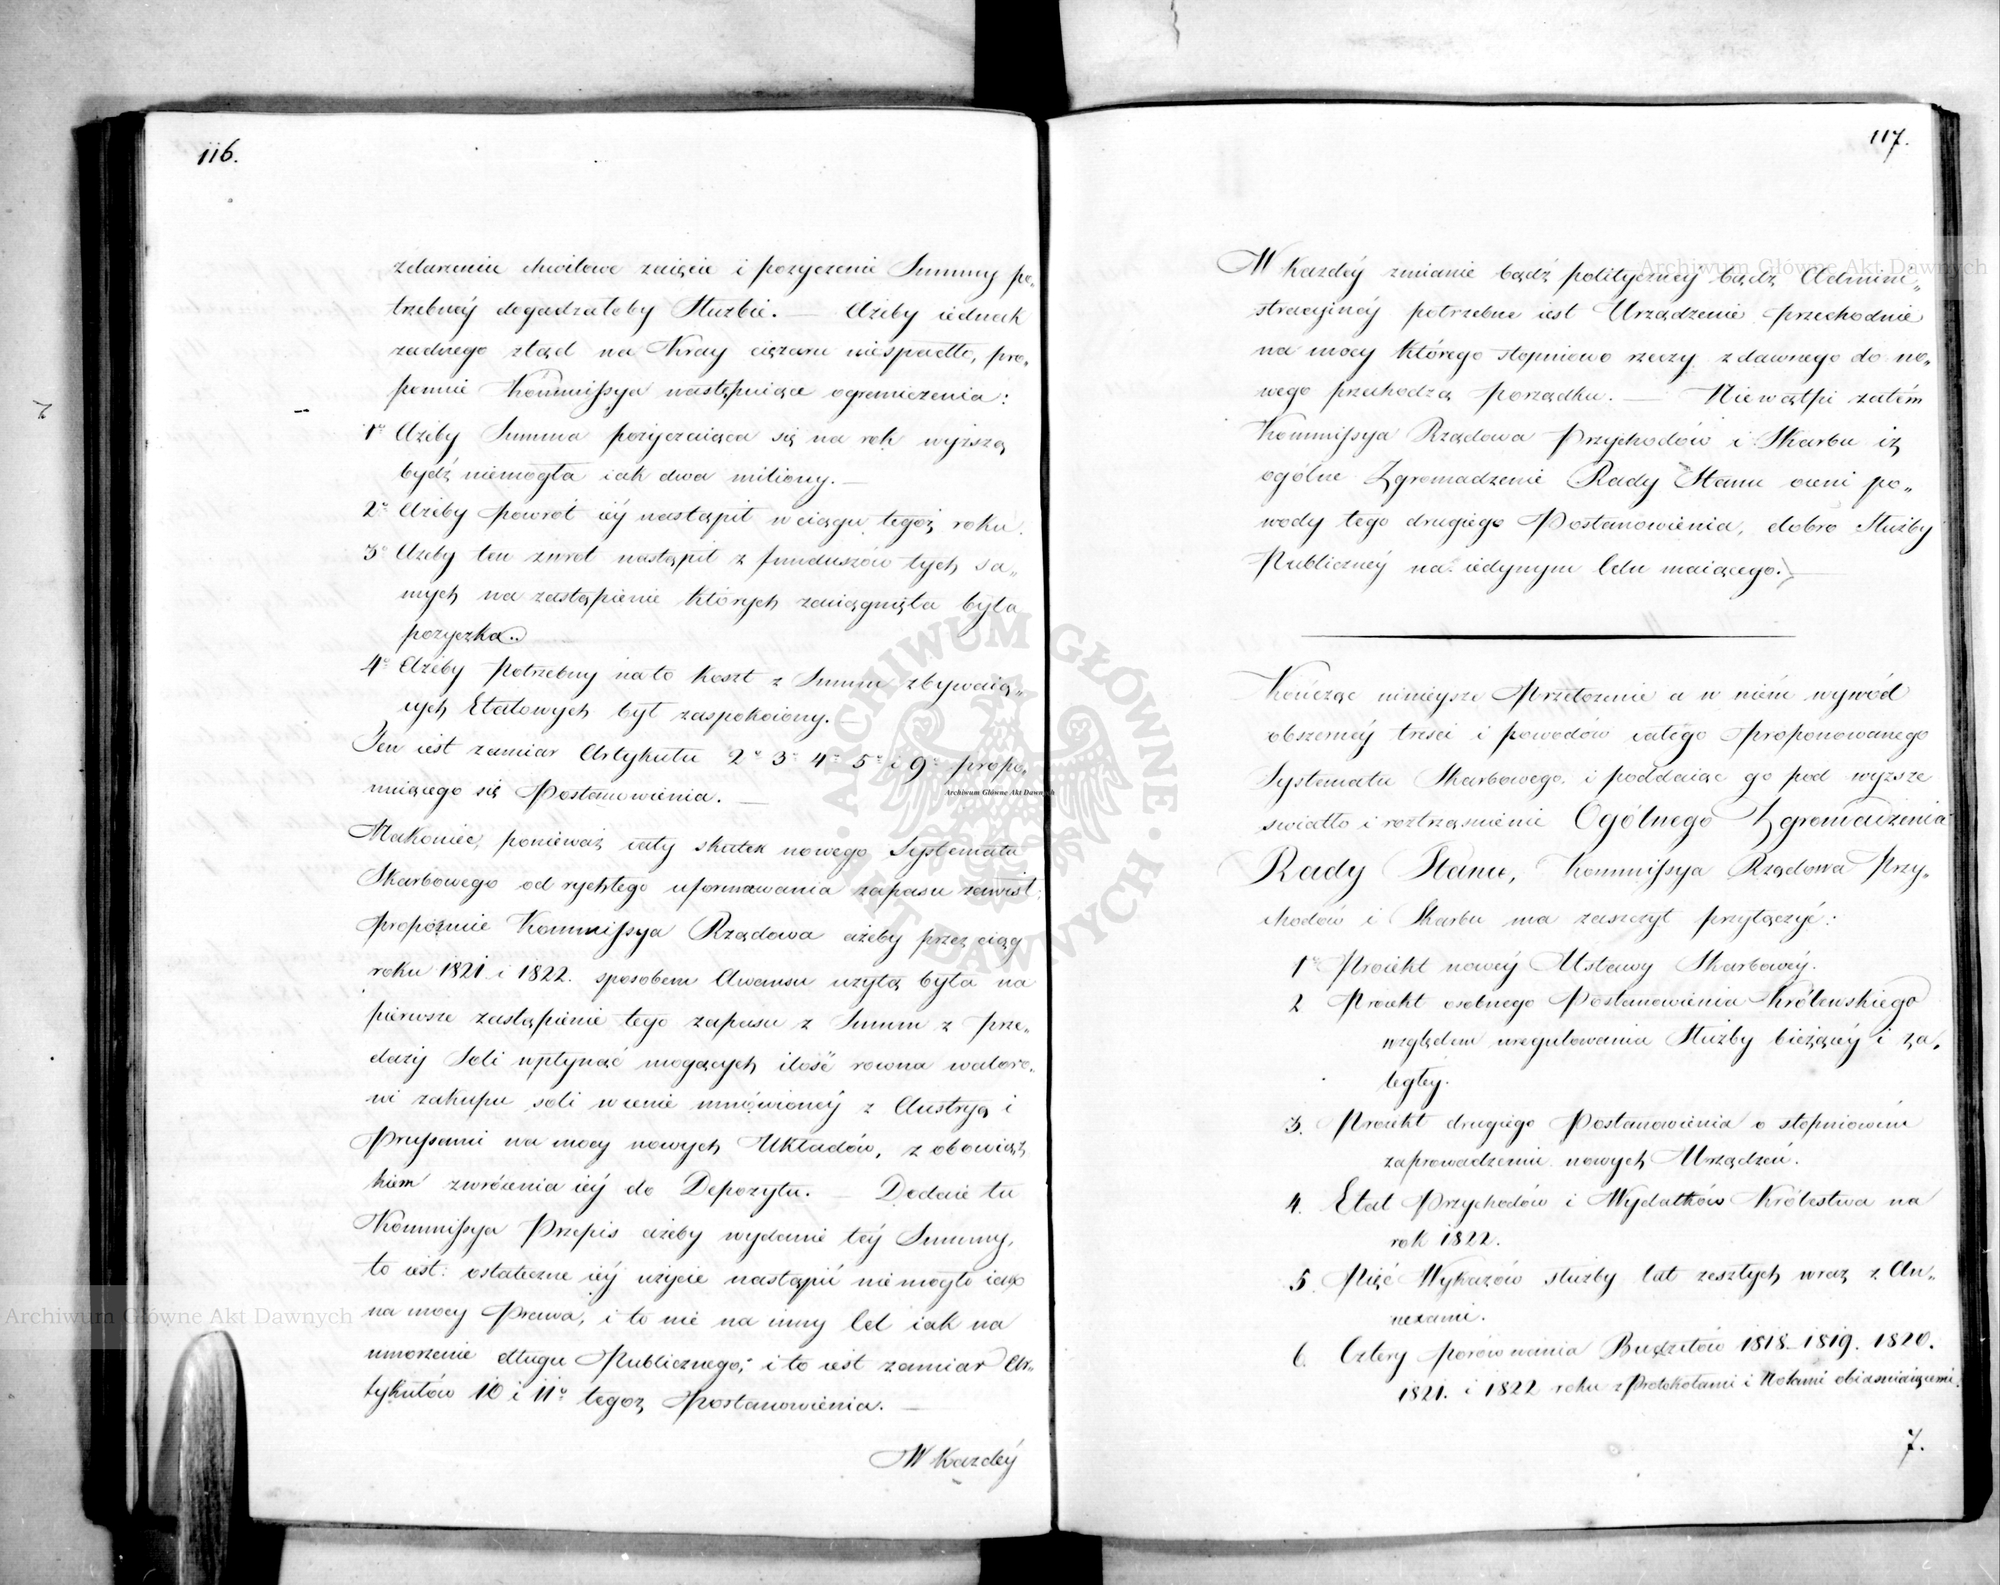 116.
zdarzeniu chwilowe zaięcie i pożyczenie Summy po„
trzebnéy dogadzałoby Służbie. — Ażeby iednak
żadnego ztąd na Kray ciężaru niespadło, pro„
ponuie Kommissya następuiące ograniczenia:
1º Ażeby Summa pożyczaiąca się na rok wyższą
bydź niemogła iak dwa miliony. —
2º Ażeby powrót iéy nastąpił w ciągu tegoż roku.
3º Ażeby ten zwrot nastąpił z funduszów tych sa„
mych na zastąpienie których zaciągnięta była
pożyczka. —
4º Ażeby potrzebny na to koszt z Summ zbywaią„
cych Etatowych był zaspokoiony. —
Ten iest zamiar Artykułu 2º 3º 4º 5º i 9º propo„
nuiącego się Postanowienia. —
Nakoniec, ponieważ cały skutek nowego Systematu
Skarbowego od rychłego uformowania zapasu zawisł,
proponuie Kommissya Rządowa ażeby przez ciąg
roku 1821. i 1822. sposobem Awansu użytą była na
pierwsze zastąpienie tego zapasu z Summ z prze„
daży Soli wpłynąć mogących ilość rowna waloro„
wi zakupu soli w cenie umówionéy z Austryą i
Prussami na mocy nowych Układów, z obowiąz„
kiem zwrócenia iéy do Depozytu. — Dodaie tu
Kommissya Przepis ażeby wydanie téy Summy,
to iest: ostateczne iéy użycie nastąpić nie mogło iak
na mocy Prawa, i to nie na inny Cel iak na
umorzenie długu Publicznego; i to iest zamiar Ar„
tykułów 10 i 11º tegoż Postanowienia. —
W każdéy
117.
W każdéy zmianie bądź polityczney bądź Admini„
stracyinéy potrzebne iest Urządzenie przechodnie
na mocy którego stopniowo rzeczy z dawnego do no„
wego przechodzą porządku. — Nie wątpi zatém
Kommissya Rządowa Przychodów i Skarbu iż
ogólne Zgromadzenie Rady Stanu oceni po„
wody tego drugiego Postanowienia, dobro Służby
Publicznéy na iedynym Celu maiącego. —
Kończąc ninieysze Przełożenie a w niém wywód
obszernéy treści i powodów całego proponowanego
Systematu Skarbowego, i poddaiąc go pod wyższe
swiatło i roztrząsnienie Ogólnego Zgromadzenia
Rady Stanu, Kommissya Rządowa Przy„
chodów i Skarbu ma zaszczyt przyłączyć:
1º Proiekt nowéy Ustawy Skarbowéy.
2 Proiekt osobnego Postanowienia Królewskiego
względem uregulowania Służby bieżącéy i za„
ległéy.
3. Proiekt drugiego Postanowienia o stopniowém
zaprowadzeniu nowych Urządzeń.
4. Etat Przychodów i Wydatków Królestwa na
rok 1822.
5. Pięć Wykazów służby lat zeszłych wraz z An„
nexami.
6. Cztery porównania Budżetów 1818. 1819. 1820.
1821. i 1822 roku z Protokołami i Notami obiasniaiącemi.
7.
Archiwum Główne Akt Dawnych
Archiwum Główne Akt Dawnych
Archiwum Główne Akt Dawnych
ARCHIWUM GŁÓWNE AKT DAWNYCH